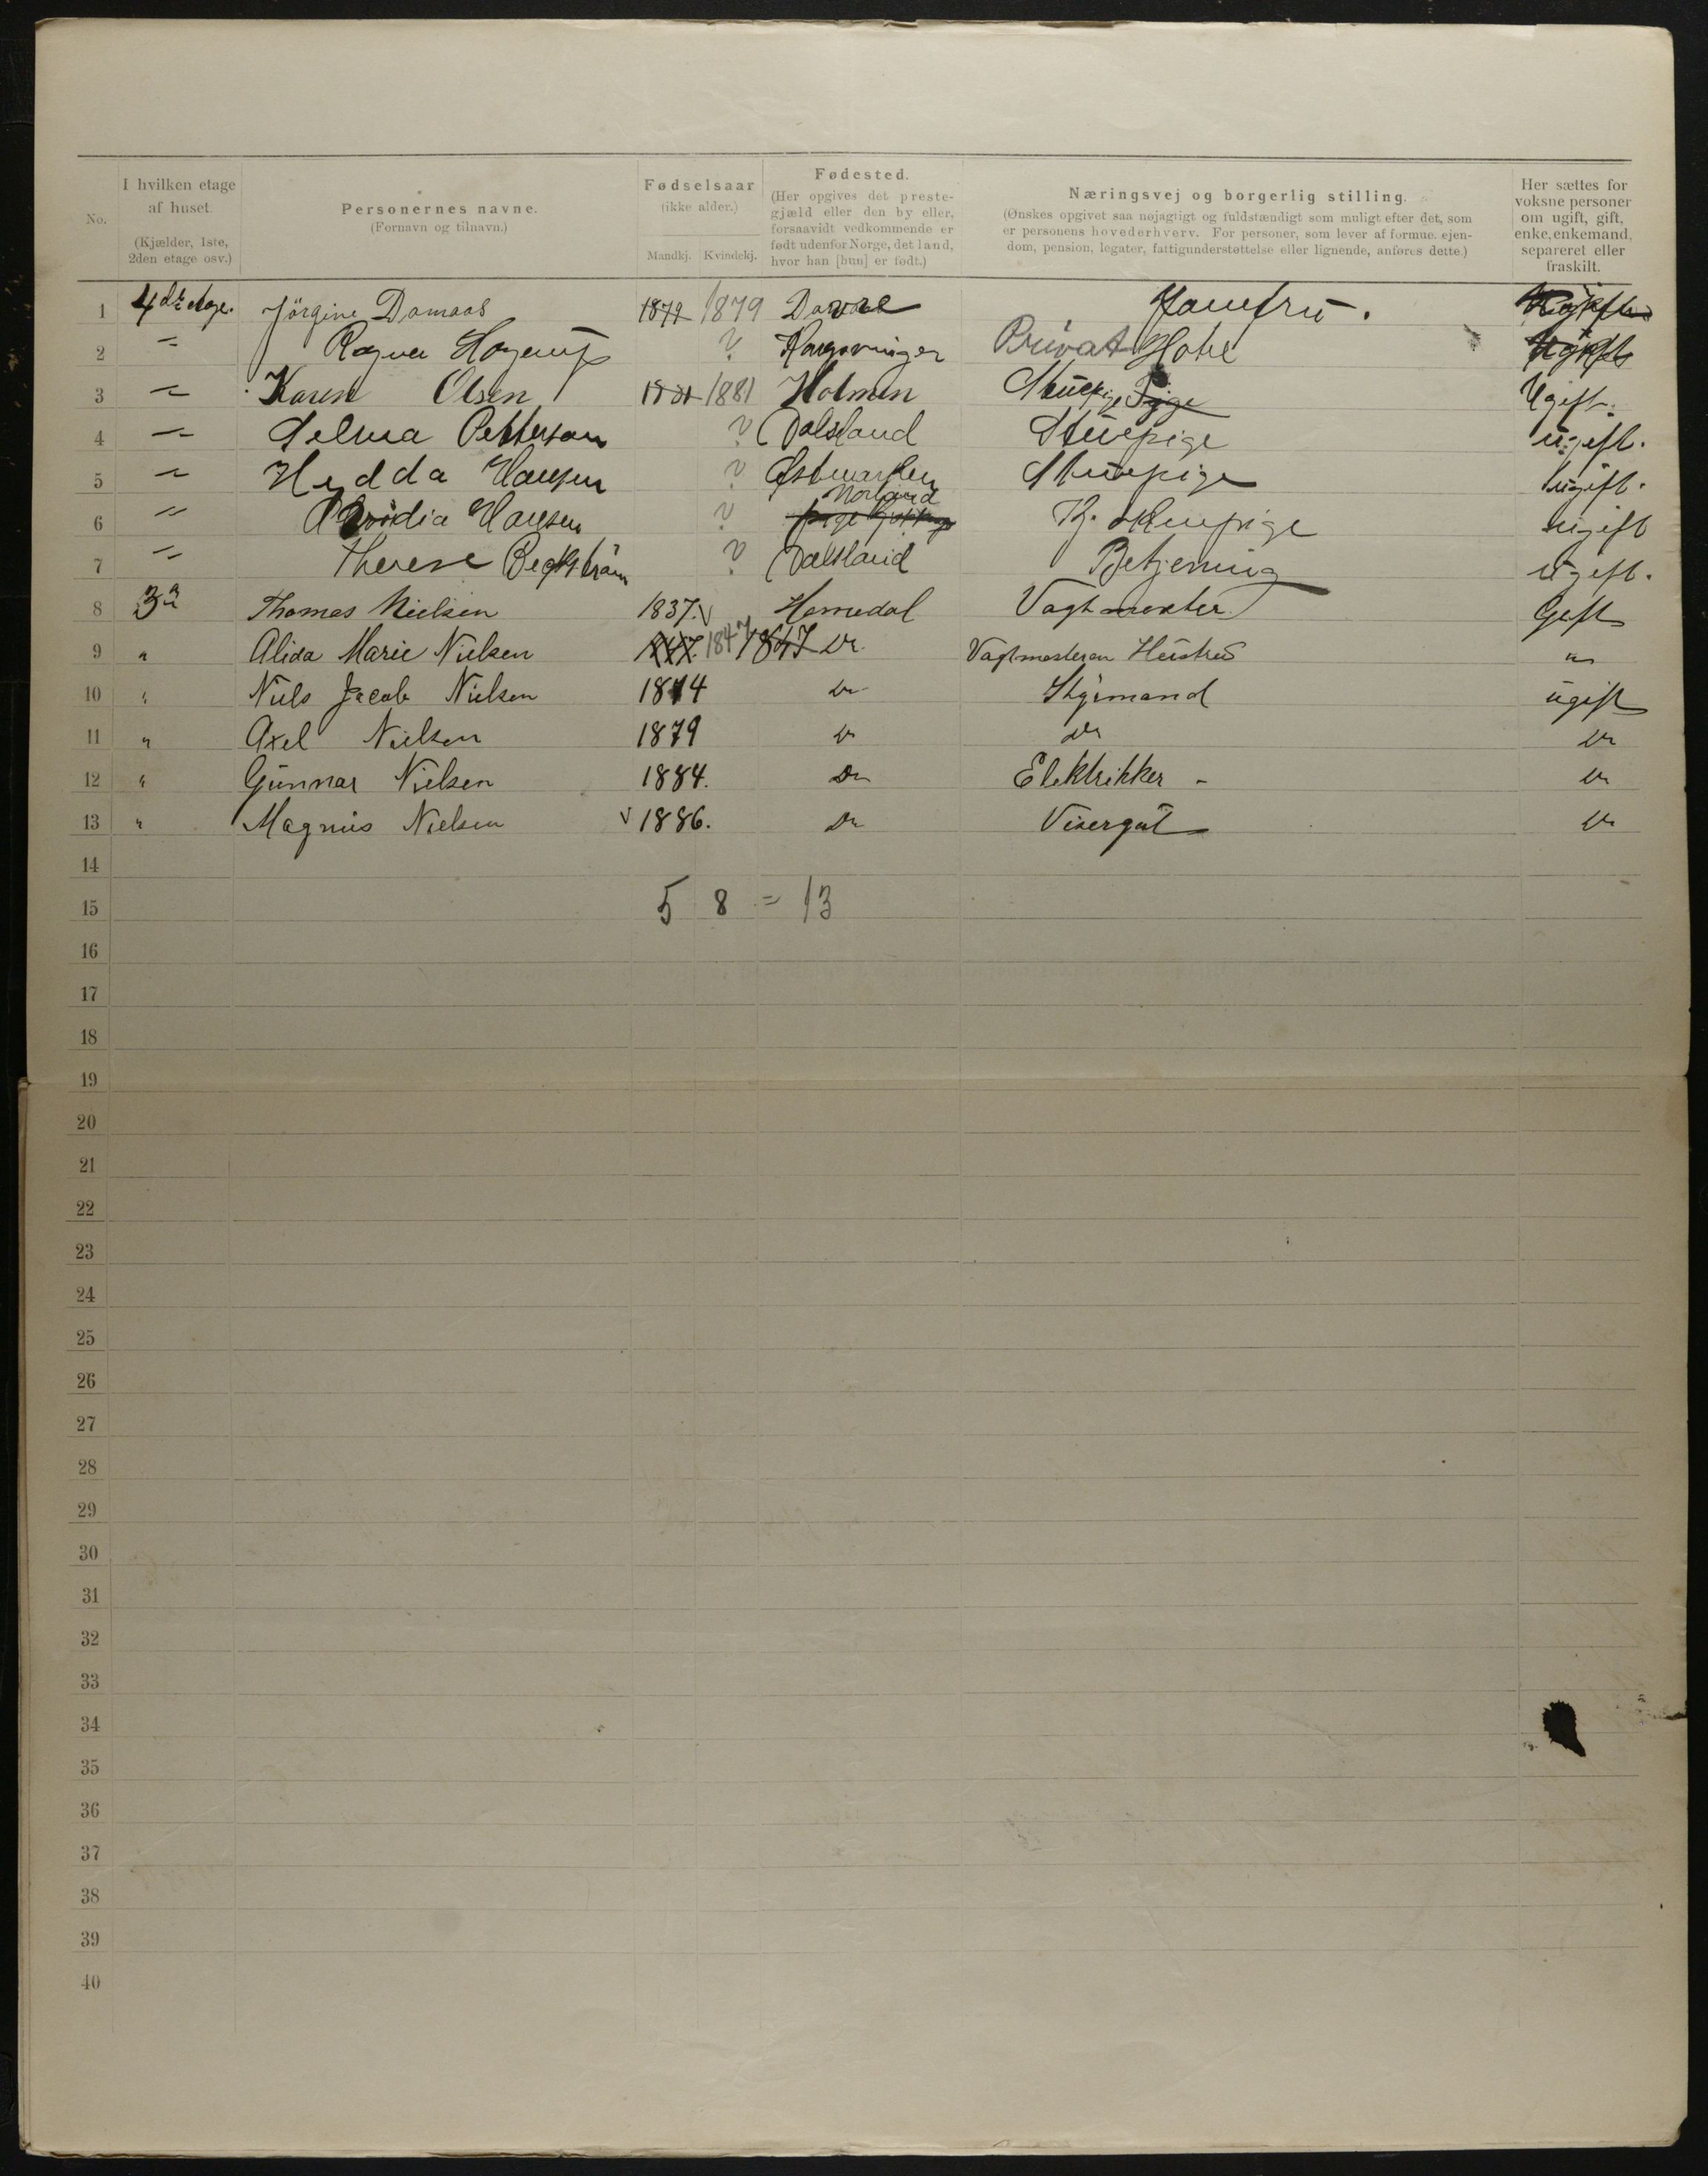 No.
I hvilken etage af huset.
(Kjælder, 1ste, 2den etage osv.)
Personernes navne.
(Fornavn og tilnavn.)
Fødselsaar
(ikke alder.)
Mandkj. Kvindekj.
Fødested.
(Her opgives det prestegjæld eller den by eller, forsaavidt vedkommende er født udenfor Norge, det land, hvor han [hun] er født.)
Næringsvej og borgerlig stilling.
(Ønskes opgivet saa nøjagtigt og fuldstændigt som muligt efter det, som er personens hovederhverv. For personer, som lever af formue, ejendom, pension, legater, fattigunderstøttelse eller lignende, anføres dette.)
Her sættes for voksne personer om ugift, gift, enke, enkemand, separeret eller fraskilt.
1 4de etage. Jörgine Damaas 1879 1879 Jomfru.
2 " Ragna ? Kongsvinger Privat Hotel
3 " Karen Olsen 1881 1881 Holmen Stuepige Pige Ugift.
4 " Selma Petterson ? Dalsland Stuepige ugift.
5 " Hedda Hansen ? Stuepige ugift.
6 " Hansen ? Norland ugift
7 " Therese ? Dalsland Betjening ugift.
8 3" Thomas Nielsen 1837. Homedal Vagtmester Gift
9 " Alida Marie Nielsen 1847 1847 Do Vagtmesteren Hustru "
10 " Niels Jacob Nielsen 1874 Do Styrmand ugift
11 " Axel Nielsen 1879 Do Do Do
12 " Gunnar Nielsen 1884. Do Elektrikker - Do
13 " Magnus Nielsen 1886. Do Visergut Do
14
15 5 8 = 13
16
17
18
19
20
21
22
23
24
25
26
27
28
29
30
31
32
33
34
35
36
37
38
39
40